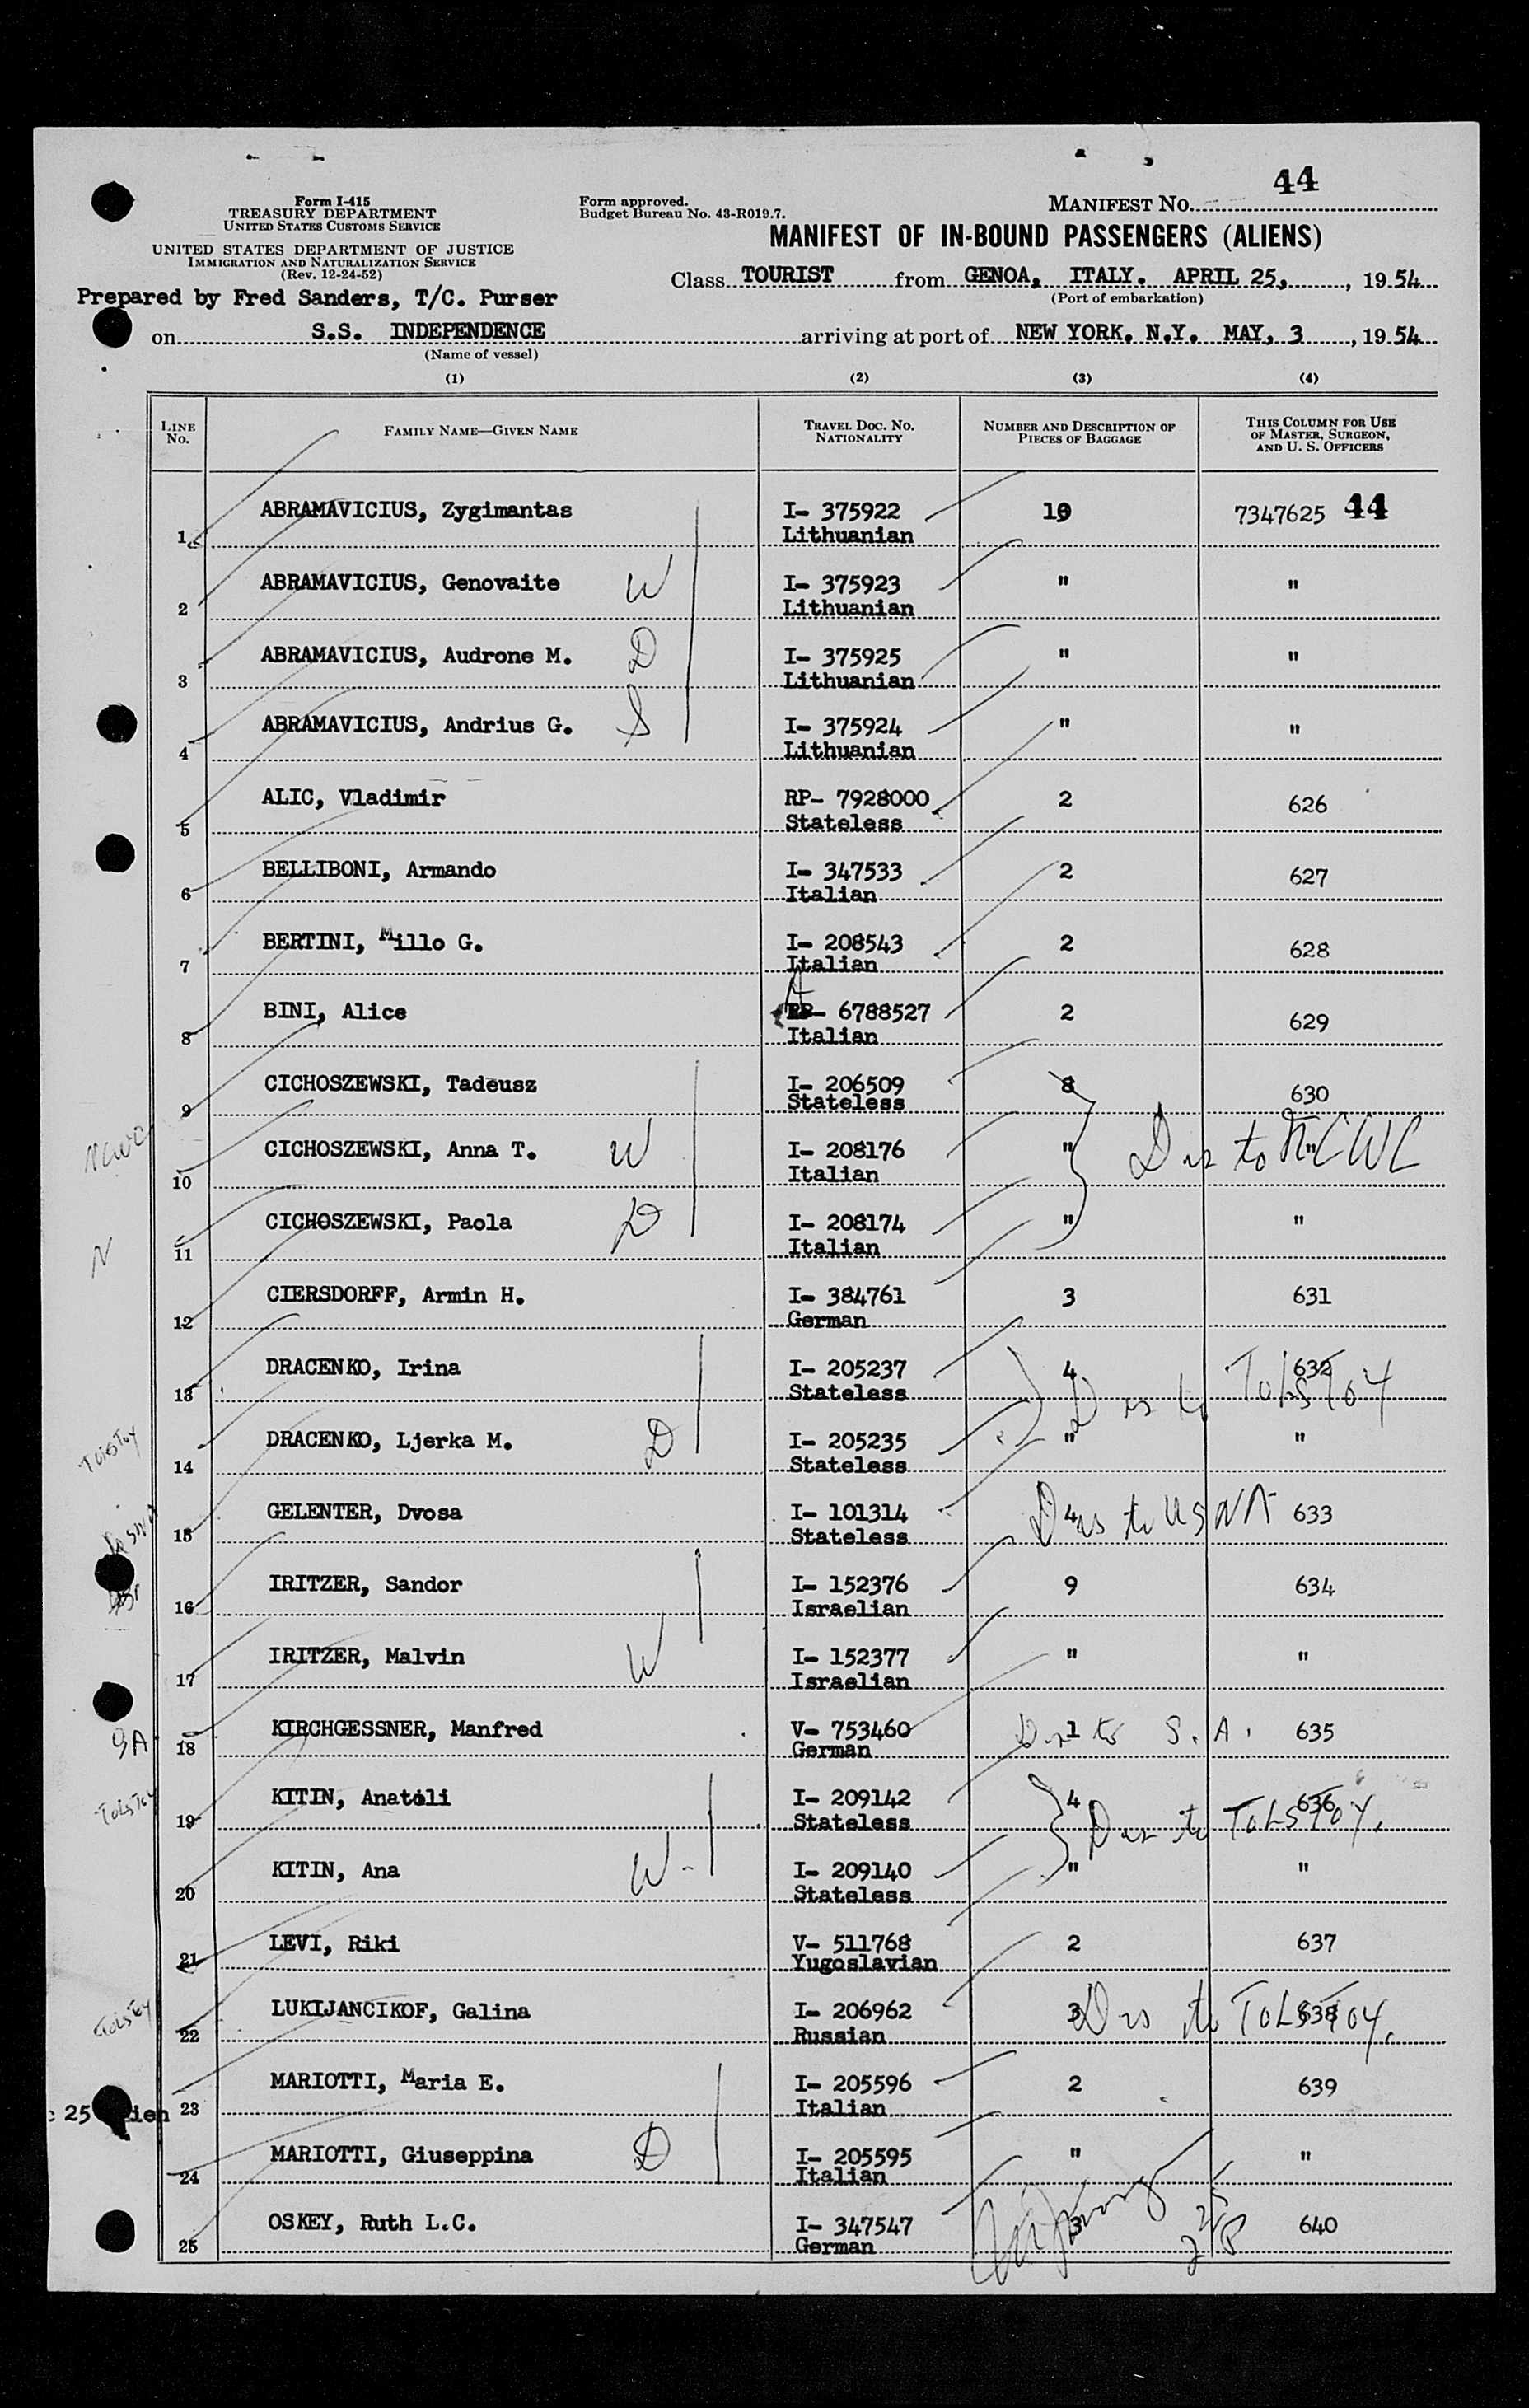 44
Form I-415
TREASURY DEPARTMENT
UNITED STATES CUSTOMS SERVICE
UNITED STATES DEPARTMENT OF JUSTICE
IMMIGRATION AND NATURALIZATION SERVICE
(Rev. 12-24-52)
Form approved.
Budget Bureau No. 43-R019.7.
MANIFEST No.
MANIFEST OF IN-BOUND PASSENGERS (ALIENS)
Class TOURIST from GENOA, ITALY. APRIL 25, , 19 54
(Port of embarkation)
Prepared by Fred Sanders, T/C. Purser
on S.S. INDEPENDENCE arriving at port of NEW YORK. N.Y. MAY, 3 , 19 54
(Name of vessel)
(1) (2) (3) (4)
LINE No. FAMILY NAME—GIVEN NAME TRAVEL DOC. No. NATIONALITY NUMBER AND DESCRIPTION OF PIECES OF BAGGAGE THIS COLUMN FOR USE OF MASTER, SURGEON, AND U. S. OFFICERS
1 ABRAMAVICIUS, Zygimantas I- 375922 10 7347625 44
Lithuanian
2 ABRAMAVICIUS, Genovaite W I- 375923 " "
Lithuanian
3 ABRAMAVICIUS, Audrone M. D I- 375925 " "
Lithuanian
4 ABRAMAVICIUS, Andrius G. S I- 375924 " "
Lithuanian
5 ALIC, Vladimir RP- 7928000 2 626
Stateless
6 BELLIBONI, Armando I- 347533 2 627
Italian
7 BERTINI, Millo G. I- 208543 2 628
Italian
8 BINI, Alice A RP- 6788527 2 629
Italian
9 CICHOSZEWSKI, Tadeusz I- 206509 8 630
Stateless
NCWC 10 CICHOSZEWSKI, Anna T. W I- 208176 " " Dis to NCWC
Italian
N 11 CICHOSZEWSKI, Paola D I- 208174 " "
Italian
12 CIERSDORFF, Armin H. I- 384761 3 631
German
13 DRACENKO, Irina I- 205237 4 632
Stateless Dis to TOLSTOY
TOLSTOY 14 DRACENKO, Ljerka M. D I- 205235 " "
Stateless
15 GELENTER, Dvosa I- 101314 4 Dis to USNA 633
Stateless
16 IRITZER, Sandor I- 152376 9 634
Israelian
17 IRITZER, Malvin W I- 152377 " "
Israelian
SA 18 KIRCHGESSNER, Manfred V- 753460 1 Dis to S.A. 635
German
TOLSTOY 19 KITIN, Anatoli I- 209142 4 636
Stateless Dis to TOLSTOY.
20 KITIN, Ana W- I- 209140 " "
Stateless
21 LEVI, Riki V- 511768 2 637
Yugoslavian
TOLSTOY 22 LUKIJANCIKOF, Galina I- 206962 3 Dis to TOLSTOY. 638
Russian
23 MARIOTTI, Maria E. I- 205596 2 639
25 Italian
24 MARIOTTI, Giuseppina D I- 205595 " "
Italian
25 OSKEY, Ruth L.C. I- 347547 3 640
German